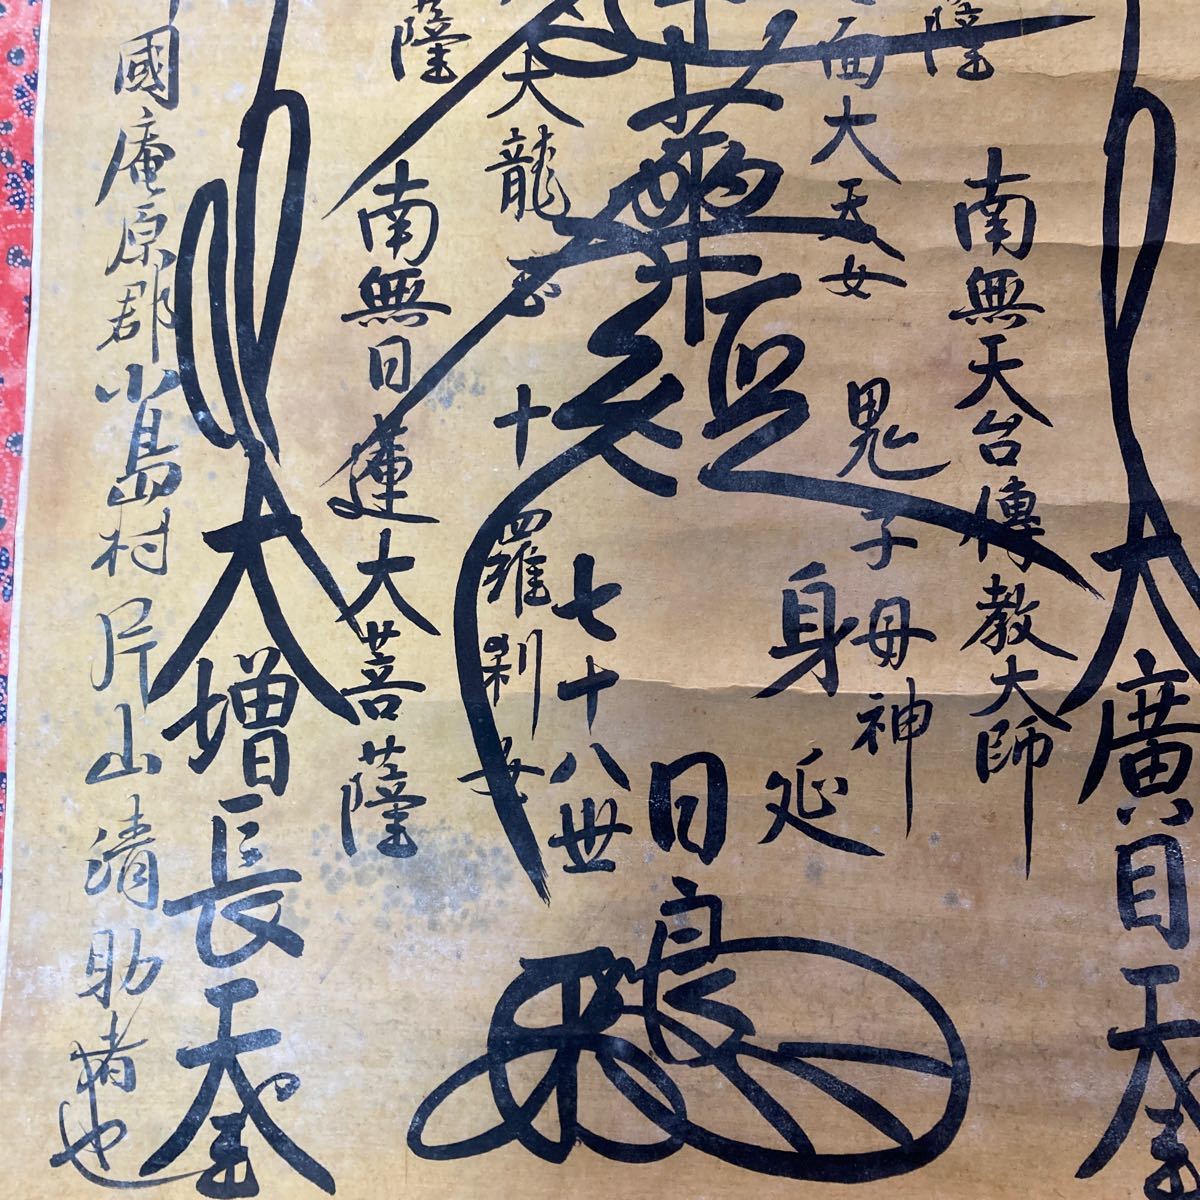 薩
大廣目天王
南無天台傳教大師
面大天女
鬼子母神
華經
日良
身延
七十八世
大龍王
十羅刹女
薩
南無日蓮大菩薩
大增長天王
國庵原郡小島村片山清助者也